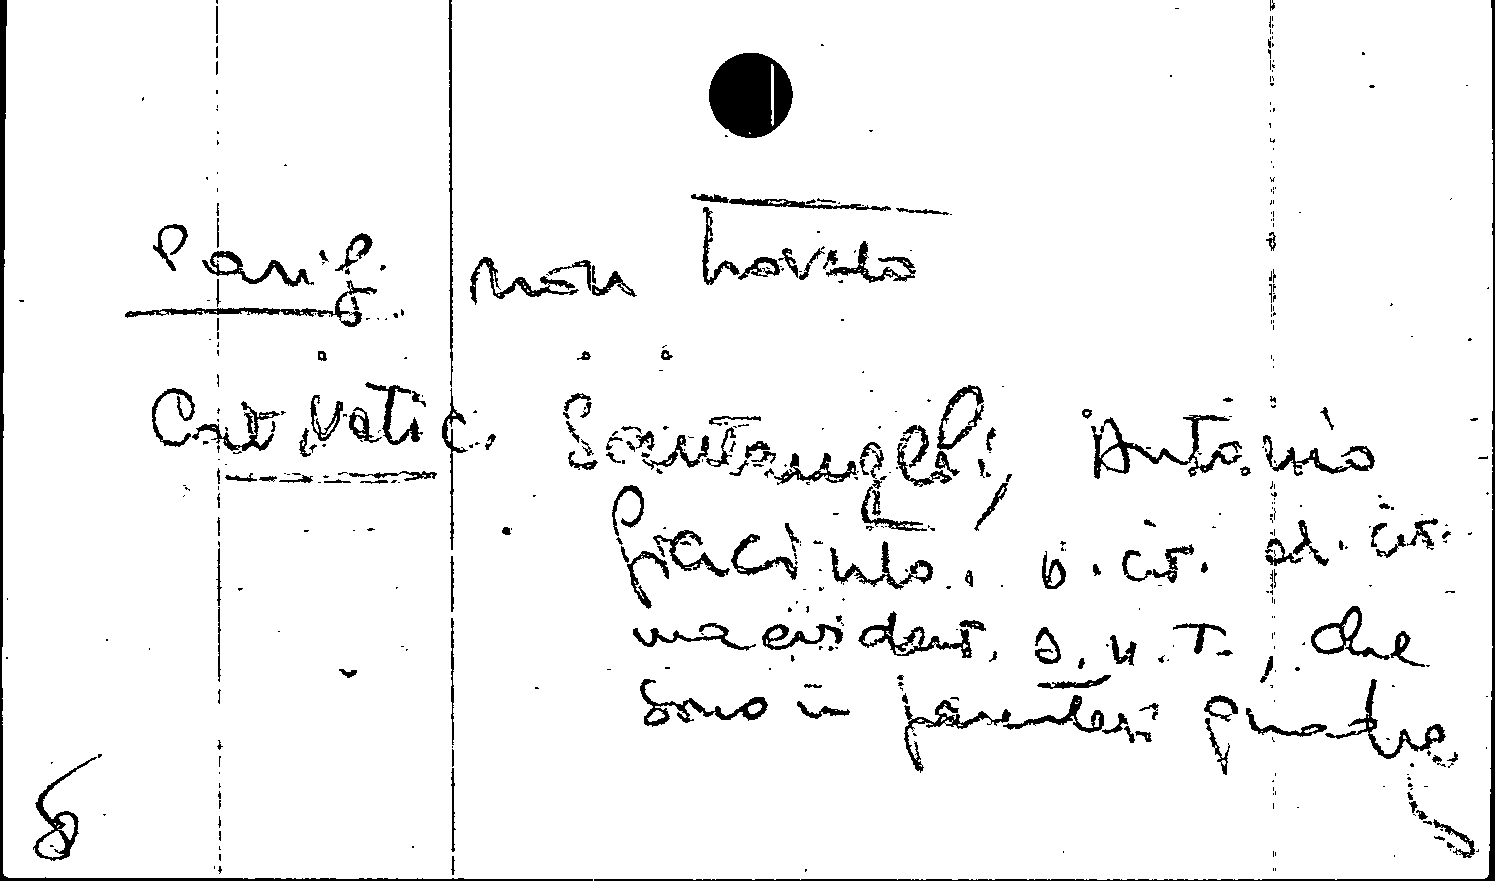 Parig. non trovato
Cat. Vatic. Santangeli, Antonio
Giacinto. v. cit. ed. cit.
ma evident. s.n.T., che
sono in parentesi quadre